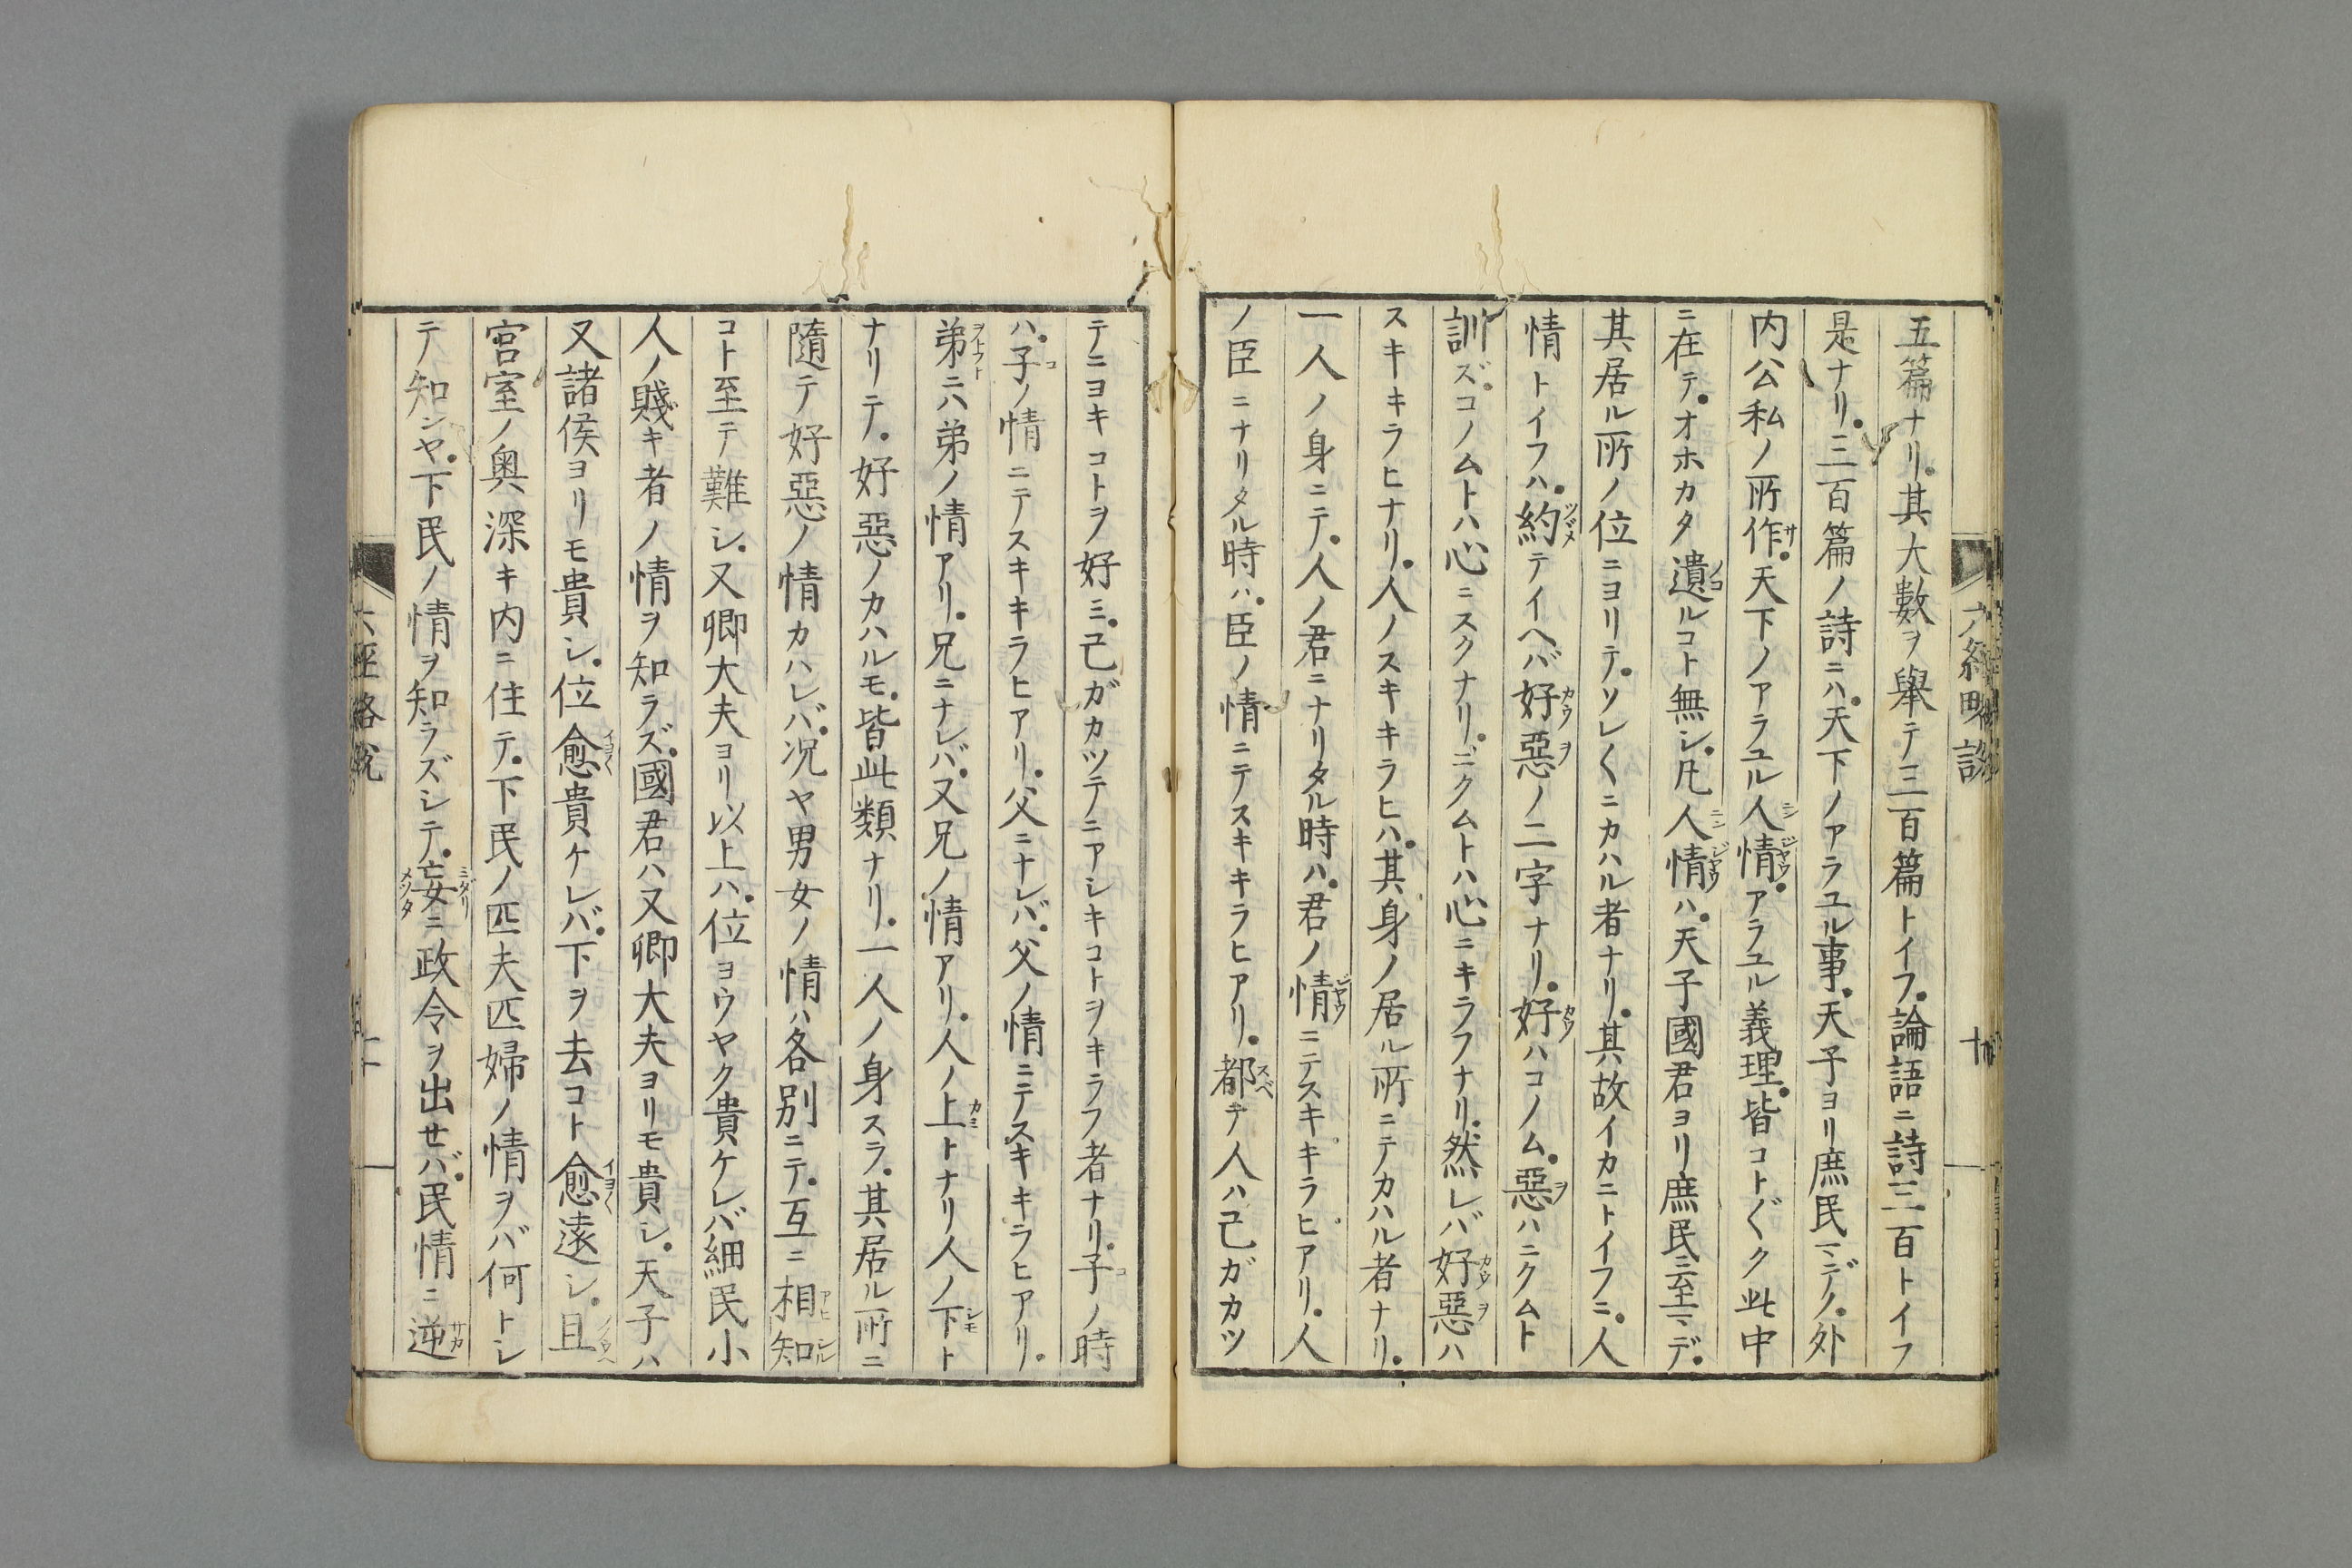 五篇ナリ。其大數ヲ舉テ三百篇トイフ。論語ニ詩三百トイフ
是ナリ。三百篇ノ詩ニハ。天下ノアラユル事。天子ヨリ庶民マデノ。外
内公私ノ所作。天下ノアラユル人情。アラユル義理。皆コト〲ク此中
ニ在テ。オホカタ遺ルコト無シ。凡人情ハ。天子國君ヨリ庶民ニ至マデ。
其居ル所ノ位ニヨリテ。ソレ〱ニカハル者ナリ。其故イカニトイフニ。人
情トイフハ。約テイヘバ好惡ノ二字ナリ。好ハコノム。惡ハニクムト
訓ズ。コノムトハ心ニスクナリ。ニクムトハ心ニキラフナリ。然レバ好惡ハ
スキキラヒナリ。人ノスキキラヒハ。其身ノ居ル所ニテカハル者ナリ。
一人ノ身ニテ。人ノ君ニナリタル時ハ。君ノ情ニテスキキラヒアリ。人
ノ臣ニナリタル時ハ。臣ノ情ニテスキキラヒアリ。都テ人ハ己ガカツ
六經略說
テニヨキコトヲ好ミ。己ガカツテニアシキコトヲキラフ者ナリ。子ノ時
ハ。子ノ情ニテスキキラヒアリ。父ニナレバ。父ノ情ニテスキキラヒアリ。
弟ニハ弟ノ情アリ。兄ニナレバ。又兄ノ情アリ。人ノ上トナリ人ノ下ト
ナリテ。好惡ノカハルモ。皆此類ナリ。一人ノ身スラ。其居ル所ニ
隨テ好惡ノ情カハレバ。况ヤ男女ノ情ハ各別ニテ。互ニ相知
コト至テ難シ。又卿大夫ヨリ以上ハ。位ヨウヤク貴ケレバ細民小
人ノ賤キ者ノ情ヲ知ラズ。國君ハ又卿大夫ヨリモ貴シ。天子ハ
又諸侯ヨリモ貴シ。位愈貴ケレバ。下ヲ去コト愈遠シ。且
宮室ノ奧深キ内ニ住テ。下民ノ匹夫匹婦ノ情ヲバ何トシ
テ知ンヤ。下民ノ情ヲ知ラズシテ。妄ニ政令ヲ出セバ。民情ニ逆
六經略說